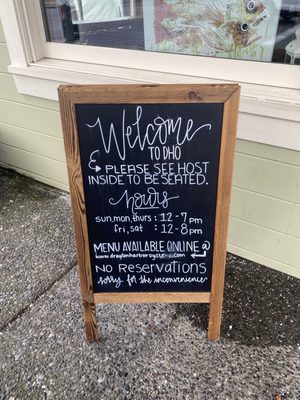 Welcome
TO DHO
PLEASE SEE HOST
INSIDE TO BE SEATED.
hours
sun, mon, thurs: 12-7pm
fri, sat : 12-8pm
MENU AVAILABLE ONLINE @
www.draytonharboroysters.com
NO Reservations
sorry for the inconvenience